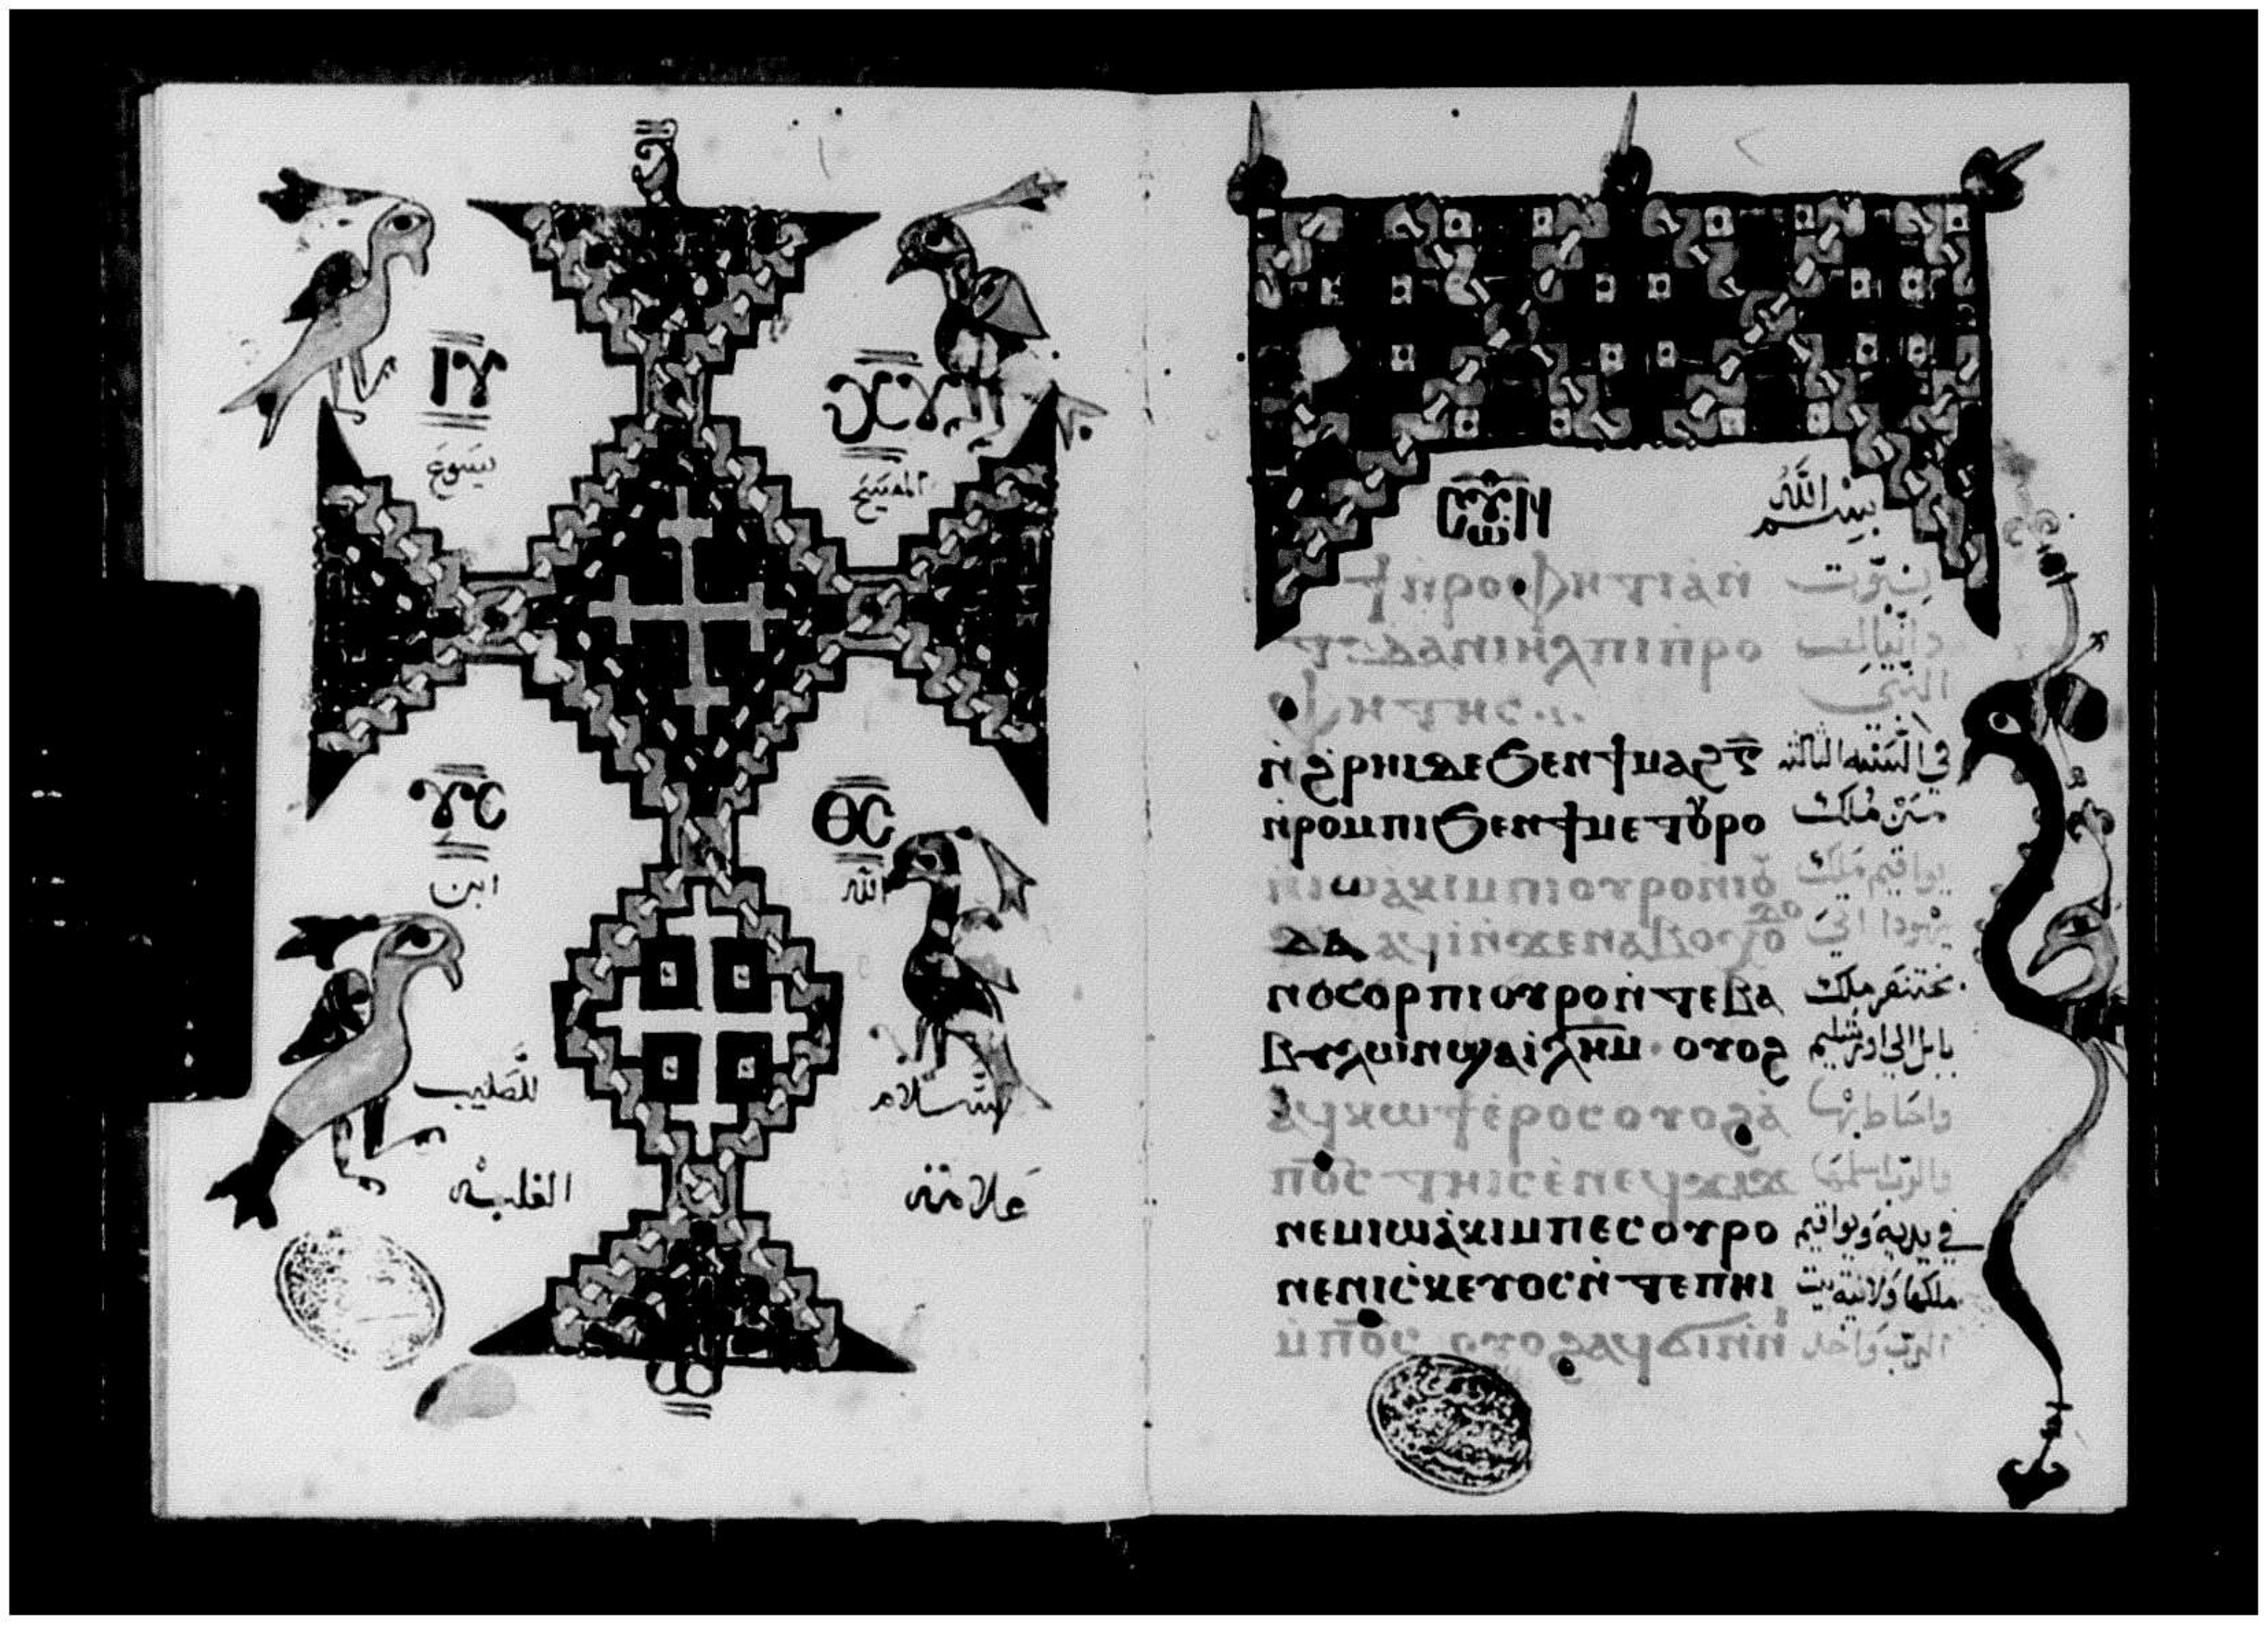 ⲓⲩ
يسوع
ⲡⲭⲥ
المسيح
ⲩⲥ
ابن
ⲑⲥ
الله
للصليب
سلام
الغلبه
علامة
بسم الله
ϯⲡⲣⲟⲫⲏⲧⲓⲁⲛ نبوت
ⲧⲉⲇⲁⲛⲓⲏⲗⲡⲓⲡⲣⲟ دانيال
ⲫⲏⲧⲏⲥ النبي
ⲛ̀ϩⲣⲏⲓⲇⲉϧⲉⲛϯⲙⲁϩⲅ̄ في السنه الثالثه
ⲛ̀ⲣⲟⲙⲡⲓϧⲉⲛϯⲙⲉⲧⲟⲩⲣⲟ من ملك
ⲛ̀ⲓⲱⲁⲕⲓⲙⲡⲓⲟⲩⲣⲟⲛⲓⲟⲩ يواقيم ملك
ⲇⲁ ⲁϥⲓ̀ⲛ̀ϫⲉⲛⲁⲃⲟⲩⲭⲟ ⲇⲟ يهودا اتى
ⲛⲟⲥⲟⲣⲡⲓⲟⲩⲣⲟⲛ̀ⲧⲉⲃⲁ بختنصر ملك
ⲃⲩⲗⲱⲛ ⲉ̀ⲓⲗⲏⲙ ⲟⲩⲟϩ بابل الى اورشليم
ⲁϥⲕⲱϯⲉ̀ⲣⲟⲥⲟⲩⲟϩⲁ̀ واحاط بها
ⲡ̄ⲟ̄ⲥ̄ ⲧⲏⲓⲥⲉ̀ⲛⲉϥϫⲓϫ والرب اسلمها
ⲛⲉⲙⲓⲱⲁⲕⲓⲙⲡⲉⲥⲟⲩⲣⲟ في يديه ويواقيم
ⲛⲉⲛⲓⲥⲕⲉⲩⲟⲥⲛ̀ⲧⲉⲡⲏⲓ ملكها ولانية بيت
ⲙ̀ⲡ̄ⲟ̄ⲥ̄ ⲟⲩⲟϩⲁϥϭⲓⲛ̀ⲛⲏ الرب واخد